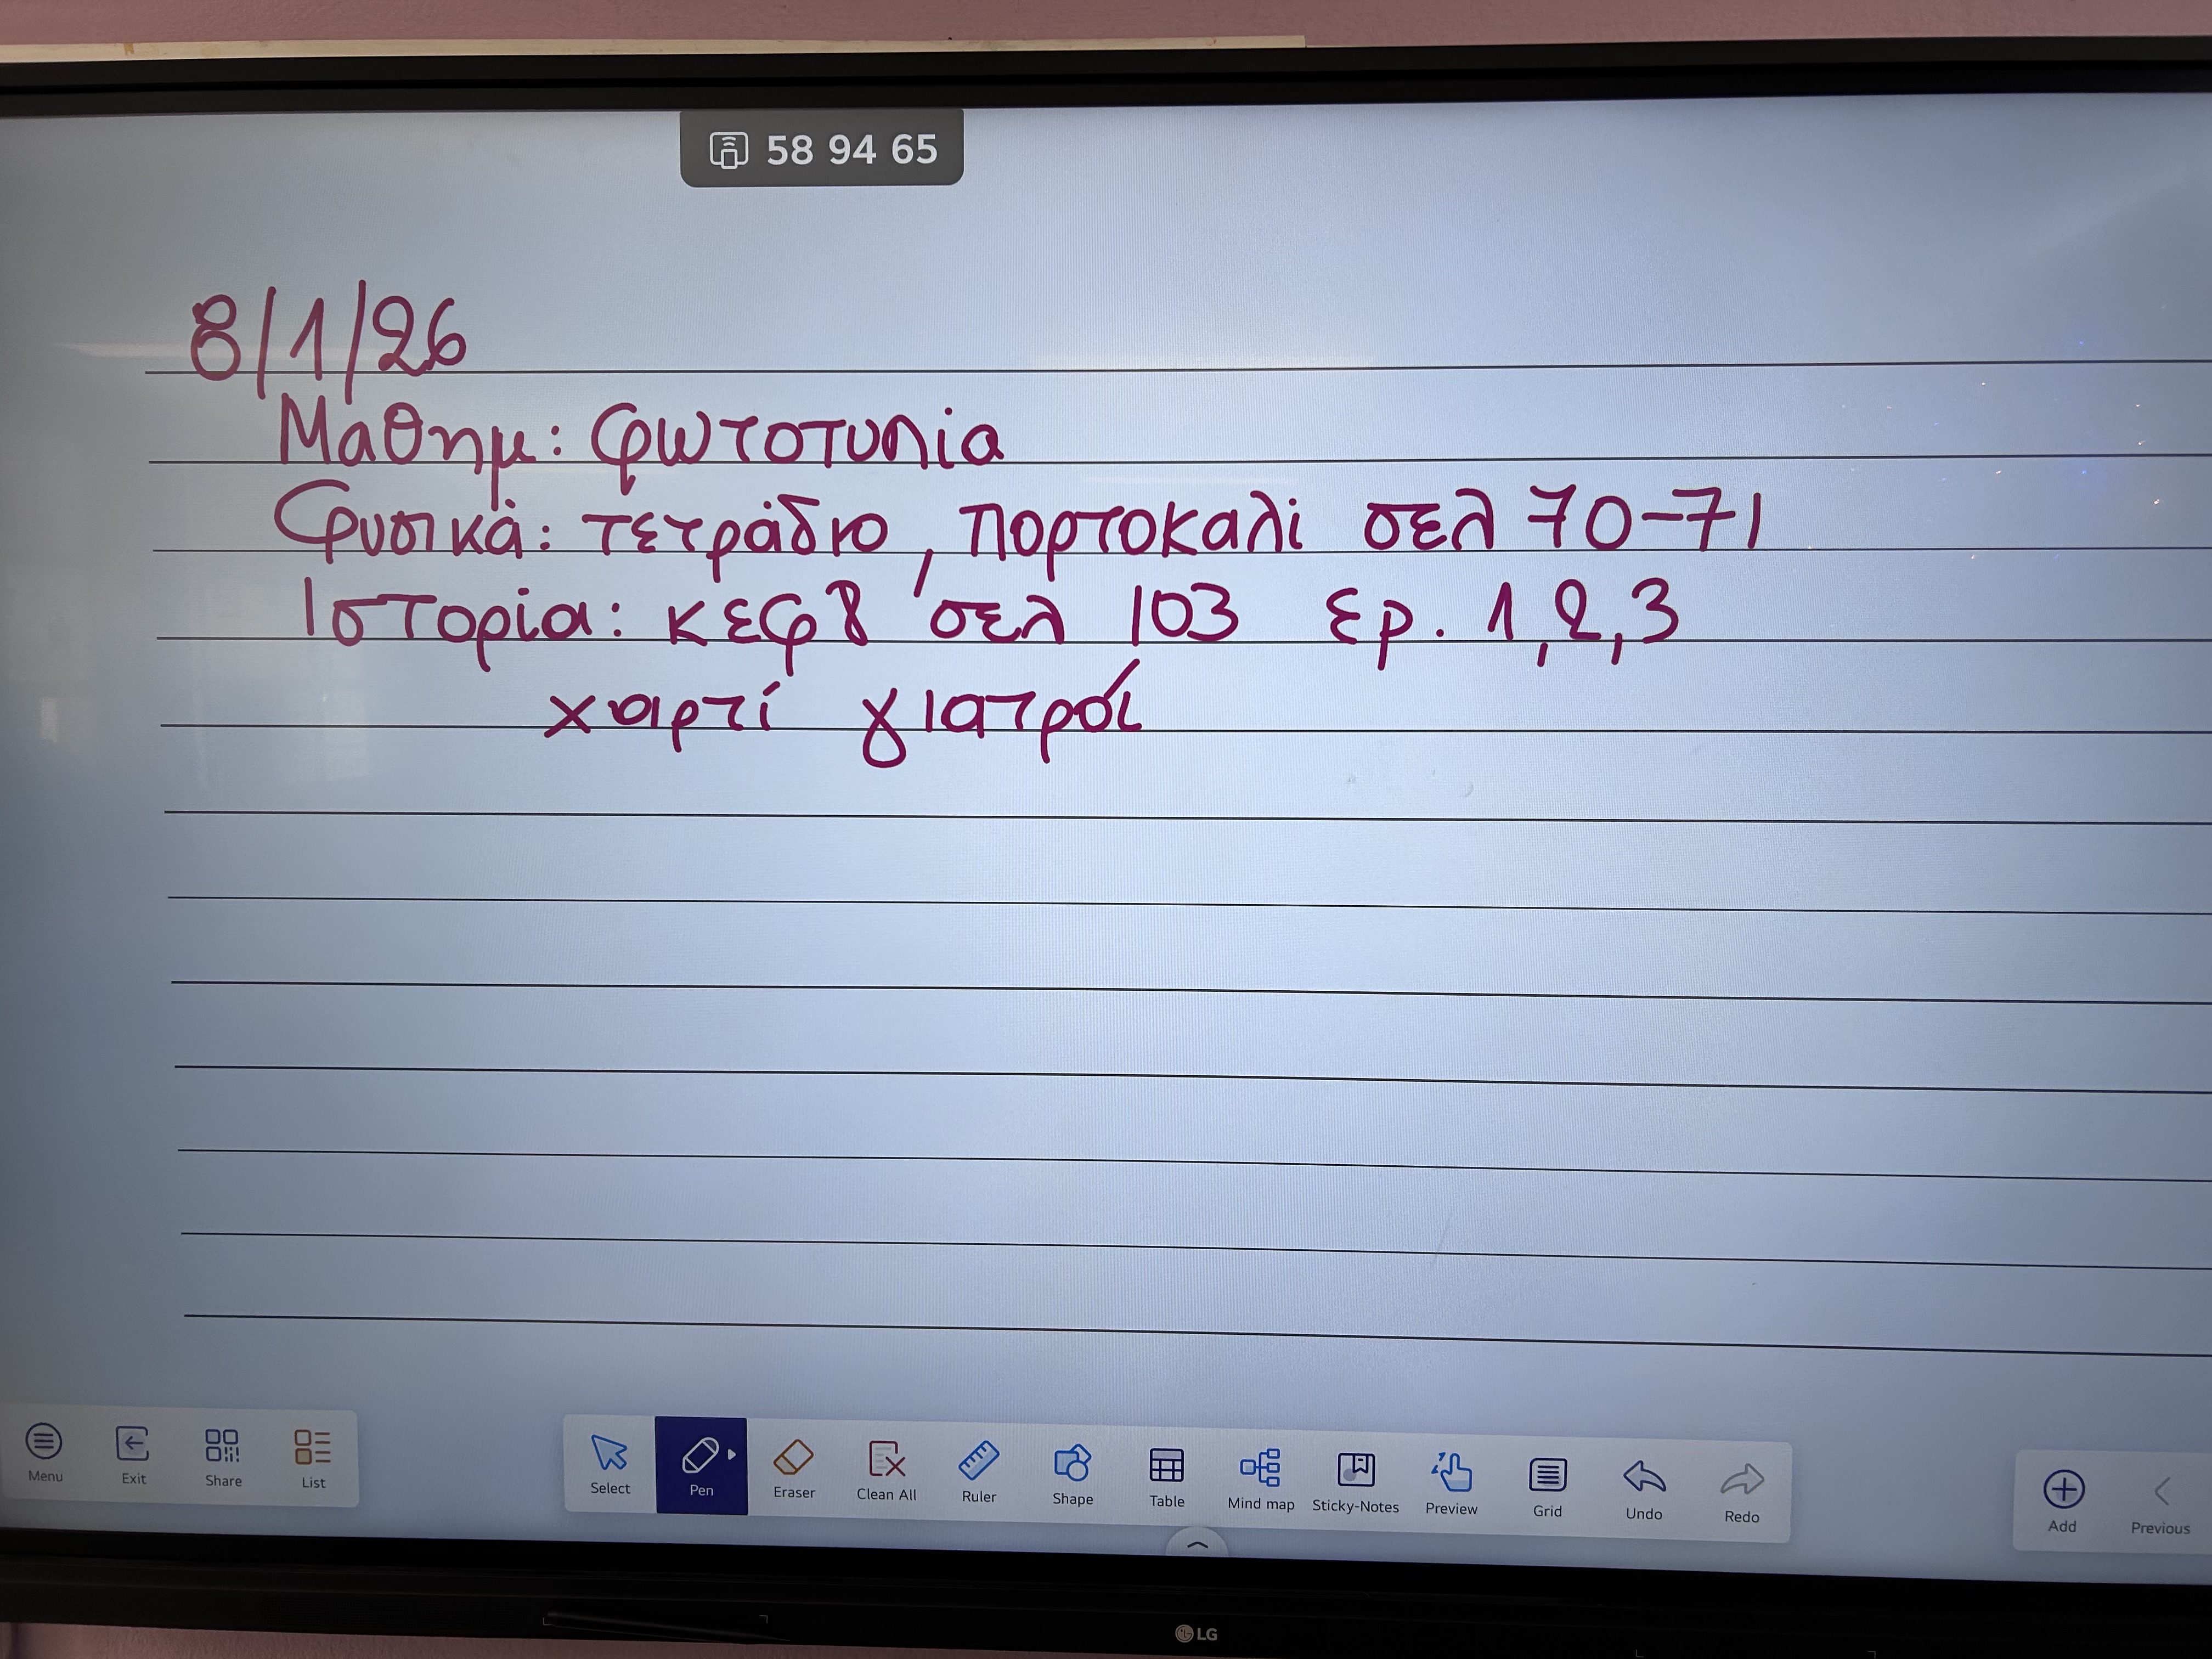 58 94 65
8/1/26
Μαθημ: φωτοτυπία
Φυσικά: τετράδιο, πορτοκαλί σελ 70-71
Ιστορία: κεφ 8 σελ 103 ερ. 1,2,3
χαρτί γιατροί
Menu Exit Share List Select Pen Eraser Clean All Ruler Shape Table Mind map Sticky-Notes Preview Grid Undo Redo Add Previous
LG